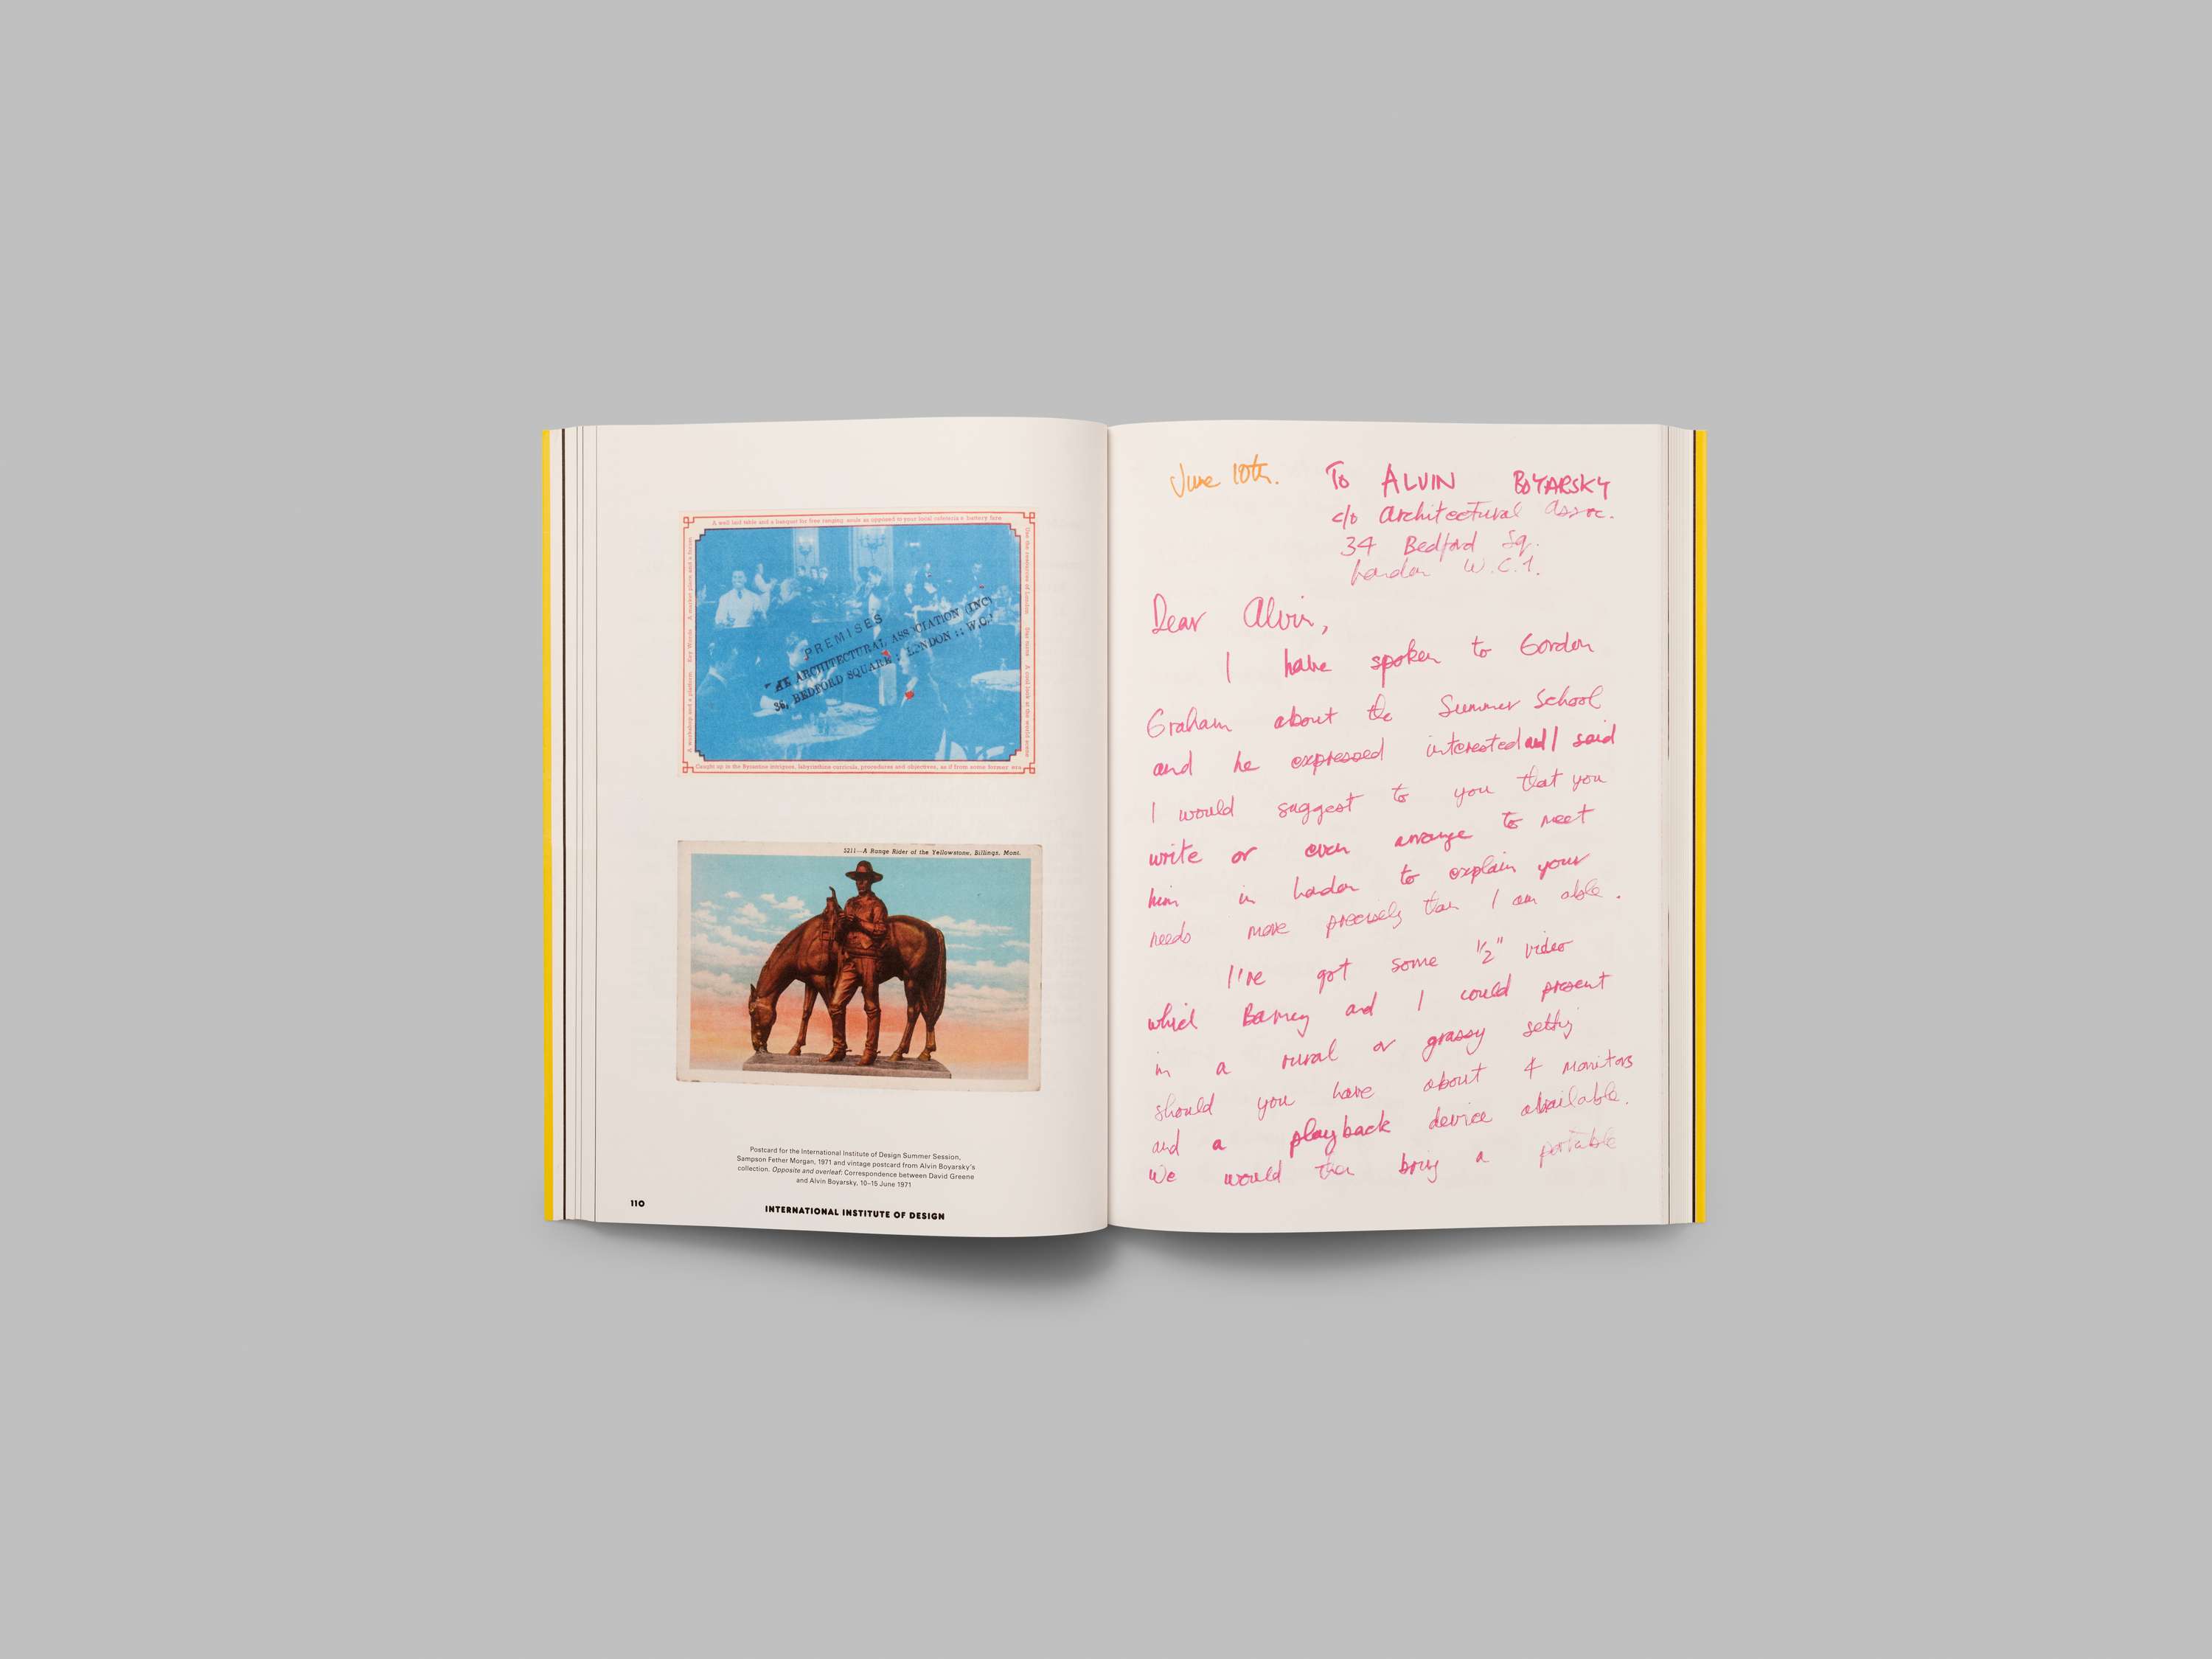 A well laid table and a banquet for free ranging souls as opposed to your local cafeteria's battery fare
Use the resources of London Star turns A cool look at the world scene
Caught up in the Byzantine intrigues, labyrinthine curricula, procedures and objectives, as if from some former era
A workshop and a platform Key Words A market place and a forum
PREMISES
ARCHITECTURAL ASSOCIATION (INC)
36, BEDFORD SQUARE : LONDON :: W.C.1
3211—A Range Rider of the Yellowstone, Billings, Mont.
Postcard for the International Institute of Design Summer Session,
Sampson Fether Morgan, 1971 and vintage postcard from Alvin Boyarsky's
collection. Opposite and overleaf: Correspondence between David Greene
and Alvin Boyarsky, 10–15 June 1971
110
INTERNATIONAL INSTITUTE OF DESIGN
June 10th.
To ALVIN BOYARSKY
c/o Architectural Assoc.
34 Bedford Sq.
London W.C.1.
Dear Alvin,
I have spoken to Gordon
Graham about the Summer School
and he expressed interested and I said
I would suggest to you that you
write or even arrange to meet
him in London to explain your
needs more precisely than I am able.
I've got some 1/2" video
which Barney and I could present
in a rural or grassy setting
should you have about 4 monitors
and a playback device available.
We would then bring a portable